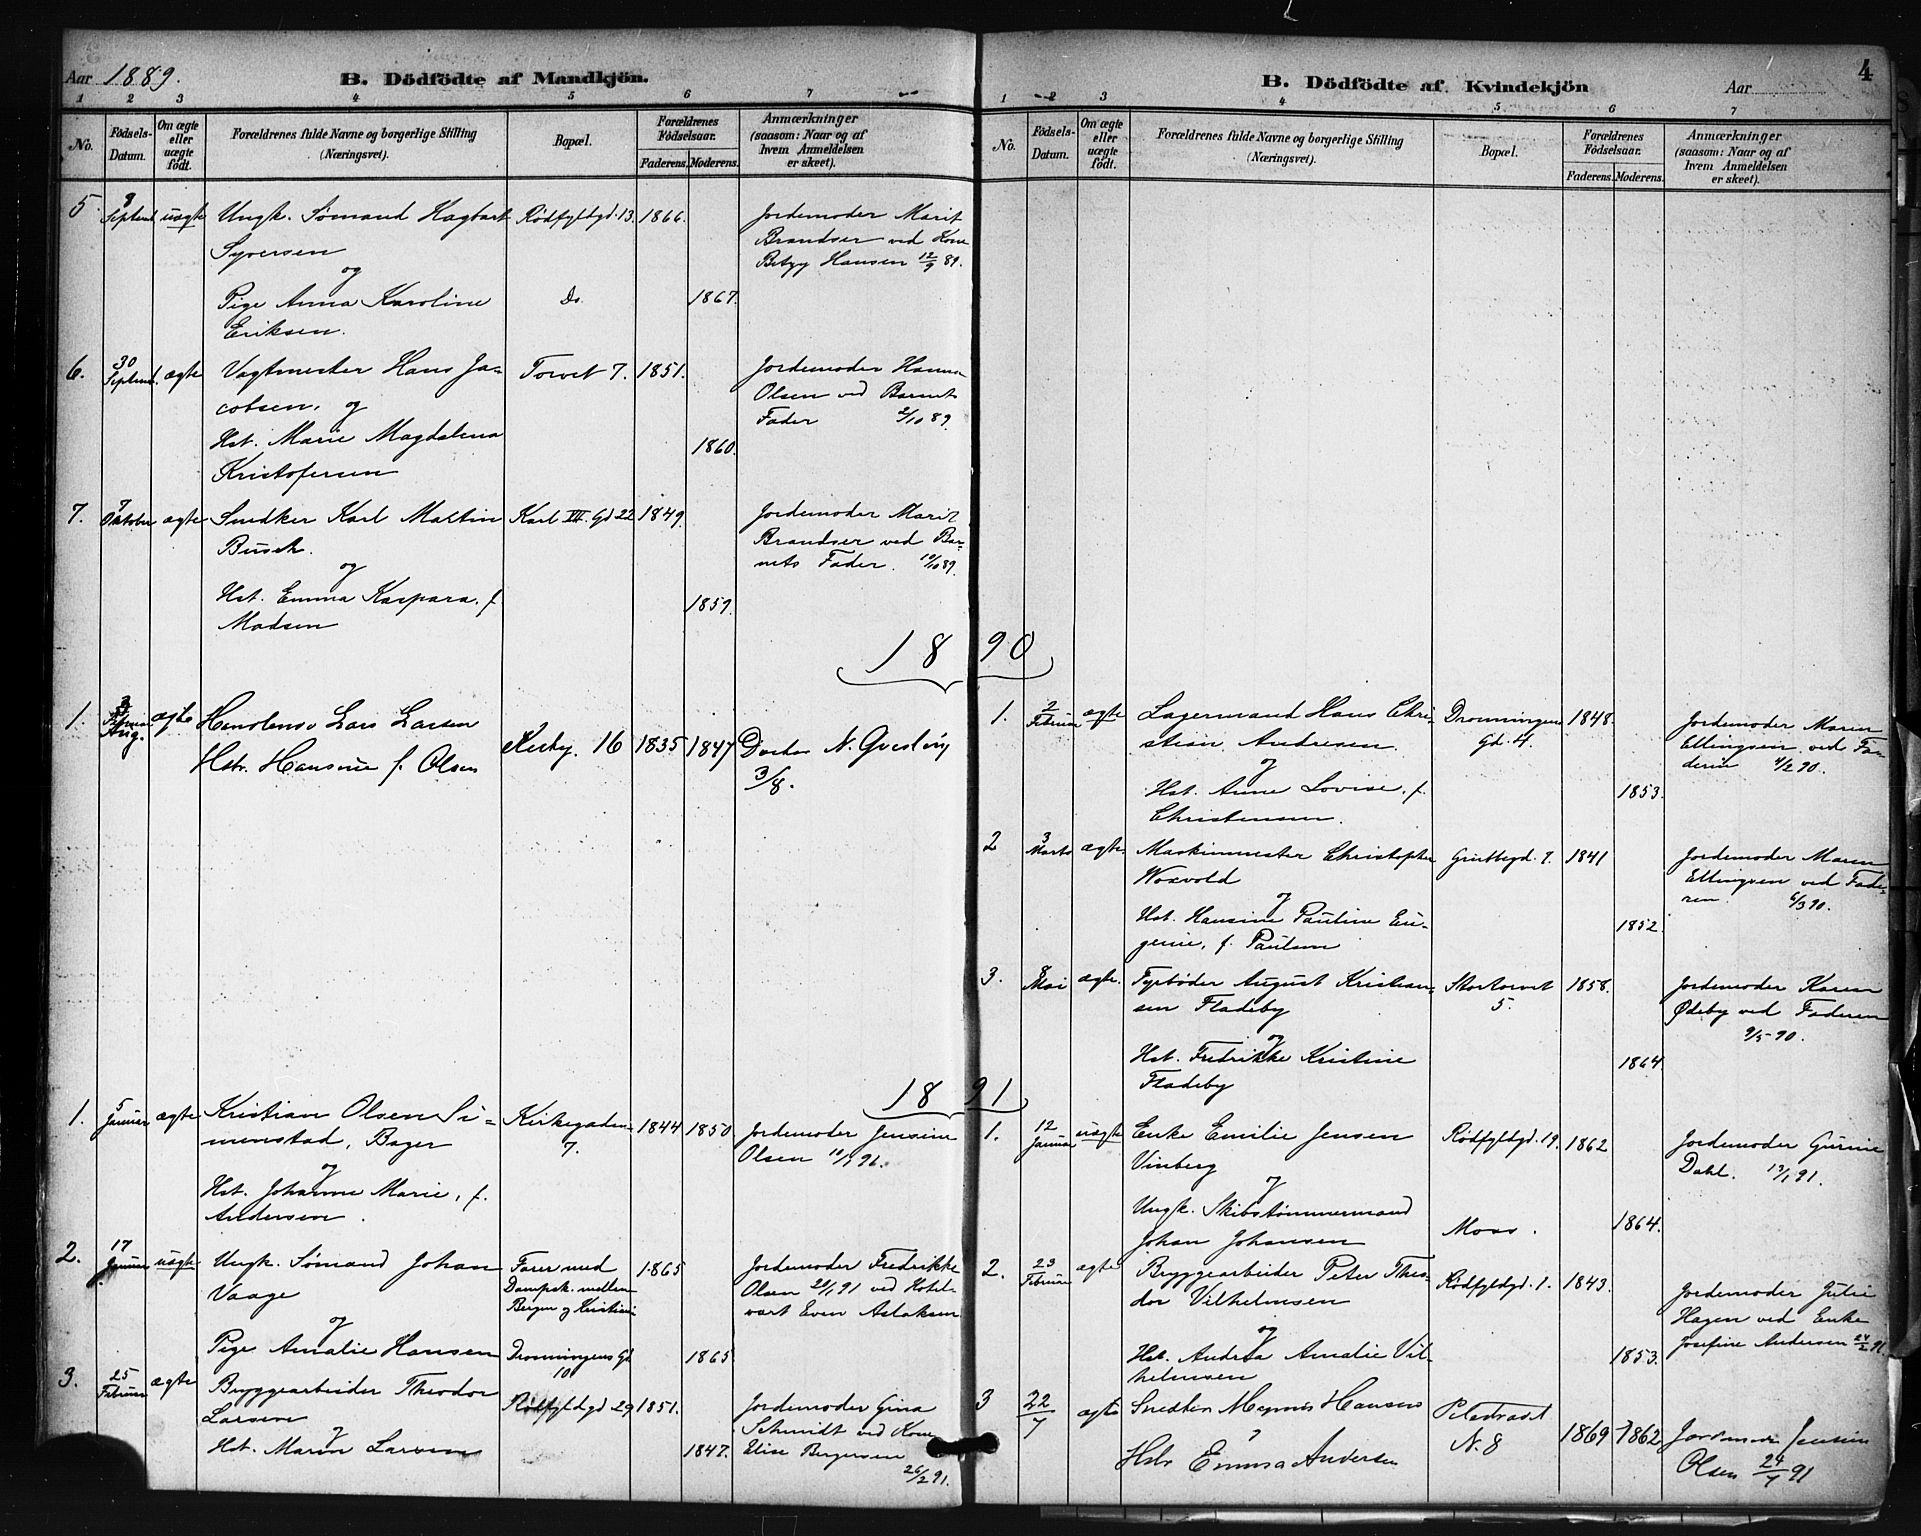 Aar 1889.
B. Dödfödte af Mandkjön.
1 2 3 4 5 6 7
No.
Födsels-
Datum.
Om ægte
eller
uægte
födt.
Forældrenes fulde Navne og borgerlige Stilling
(Næringsvei).
Bopæl.
Forældrenes
Födselsaar.
Faderens. Moderens.
Anmærkninger
(saasom: Naar og af
hvem Anmeldelsen
er skeet).
5 8 Septemb. uægte Ungk. Sømand Hagbart Rödfyldgd. 13. 1866. Jordemoder Marit
Syversen Brandser ved Kone
og Betzy Hansen 12/9 89.
Pige Anna Karoline Do. 1867.
Eriksen.
6. 30 Septemb. ægte Vagtmester Hans Ja- Torvet 7. 1851. Jordemoder Hanna
cobsen, og Olsen ved Barnets
Hst. Marie Magdalena 1860. Fader 2/10 89.
Kristofersen
7. 7 Oktober ægte Snedker Karl Martin Karl XII. Gd 22 1849. Jordemoder Marit
Busch. Brandser ved Bar-
og nets Fader. 10/10 89.
Hst. Emma Kaspara, f. 1859.
Madsen
1890
1. 3 Aug. ægte Lars Larsen
Hstr. Hansine f. Olsen Kirkg. 16 1835 1847 Doctor N. Qvesling
3/8.
1891
1. 5 Januar ægte Kristian Olsen Si- Kirkegaden 1844 1850 Jordemoder Jensine
menstad, Bager 7. Olsen 10/1 91.
og
Hst. Johanne Marie, f.
Andersen.
2. 17 Januar uægte Ungk. Sømand Johan Farer med 1865 Jordemoder Fredrikke
Vaage Dampsk. mellem Olsen 21/1 91 ved Hotel-
og Bergen og Kristiania vært Even Aslaksen
Pige Amalie Hansen Dronningens Gd 1865
10
3. 25 Februar ægte Bryggearbeider Theodor Rödfyldgd 29 1851. Jordemoder Gina
Larsen Schmidt ved Kone
og Elise Bergersen
Hst. Maren Larsen 1847. 26/2 91.
4
B. Dödfödte af Kvindekjön
Aar
1 2 3 4 5 6 7
No.
Födsels-
Datum.
Om ægte
eller
uægte
födt.
Forældrenes fulde Navne og borgerlige Stilling
(Næringsvei).
Bopæl.
Forældrenes
Födselsaar.
Faderens. Moderens.
Anmærkninger
(saasom: Naar og af
hvem Anmeldelsen
er skeet).
1. 2 Februar ægte Lagermand Hans Chri- Dronningens 1848. Jordemoder Maren
stian Andresen Gd. 4. Ellingsen ved Fa-
og deren 4/2 90.
Hst. Anne Lovise, f. 1853.
Christensen.
2 3 Marts ægte. Maskinmester Christopher 7. 1841 Jordemoder Maren
Woxvold Ellingsen ved Fade-
og ren 6/3 90.
Hst. Hansine Pauline Eu- 1852.
genie, f. Paulsen
3. 8 Mai ægte. Fyrböder August Kristian- Stortorvet 1858. Jordemoder Karen
sen Fladeby 5. Ödeby ved Faderen
og 9/5 90.
Hst. Fredrikke Kristine 1864.
Fladeby
1. 12 Januar uægte Enke Emilie Jensen Rödfyldgd. 19. 1862 Jordemoder Gurine
Vinberg Dahl. 13/1 91.
og
Ungk. Skibstømmermand
Johan Johansen Moss. 1864.
2. 23 Februar ægte Bryggearbeider Peter Theo- Rödfyldgd. 1. 1843. Jordemoder Julie
dor Vilhelmsen Hagen ved Enke
og Josefine Andersen 24/2 91.
Hst. Andrea Amalie Vil- 1853.
helmsen
3 22/7 ægte Snedker Magnus Hansen Pilestrædt 1869 1862 Jordmoder Jensine
Hstr Emma Andersen N. 8 Olsen 24/7 91